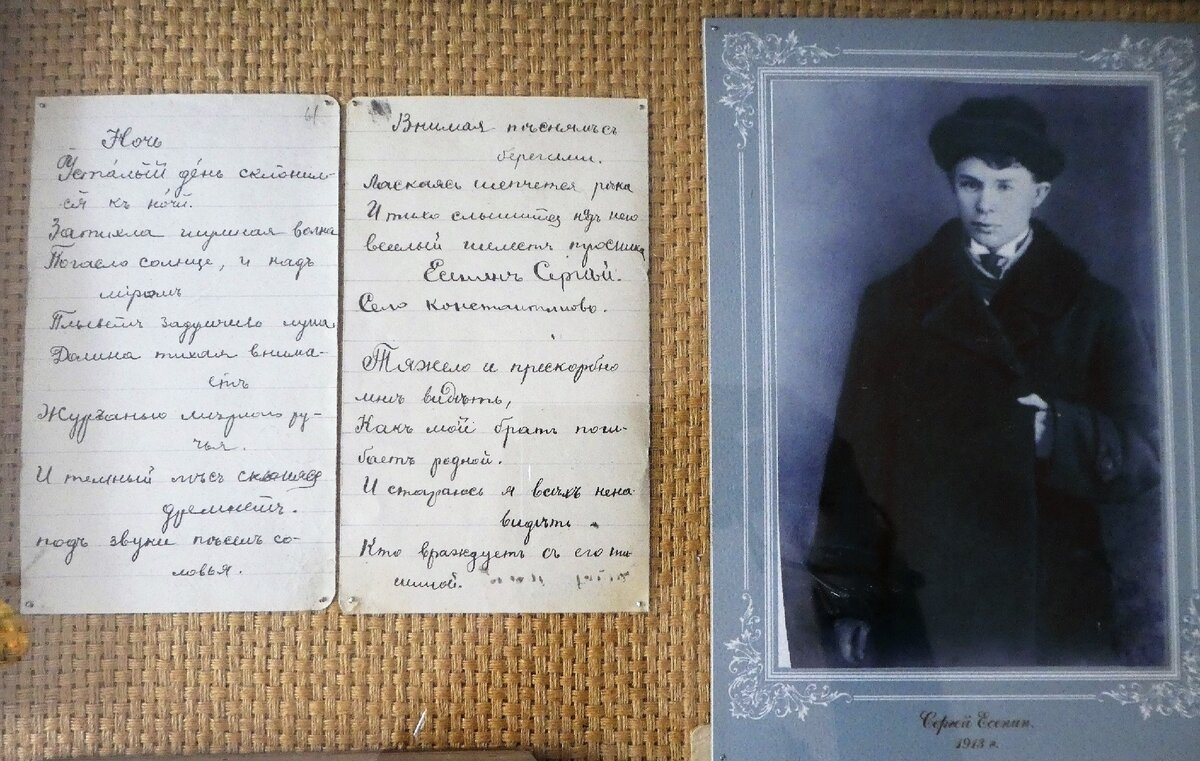 61
Ночь
Усталый день склонил-
ся къ ночи.
Затихла шумная волна
Погасло солнце, и надъ
міромъ
Плыветъ задумчиво луна
Долина тихая внима-
етъ
Журчанью мирнаго ру-
чья.
И темный лѣсъ склоняся
дремлетъ.
подъ звуки пѣсенъ со-
ловья.
Внимая пѣснямъ съ
берегами.
Ласкаясь шепчется рѣка
И тихо слышится надъ нею
веселый шелестъ тросника
Есенинъ Сергѣй.
Село Константиново.
Тяжело и прискорбно
мнѣ видѣть,
Какъ мой братъ поги-
баетъ родной.
И стараюсь я всѣхъ нена-
видѣть
Кто враждуетъ съ его ти-
шиной.
Сергей Есенин.
1913 г.